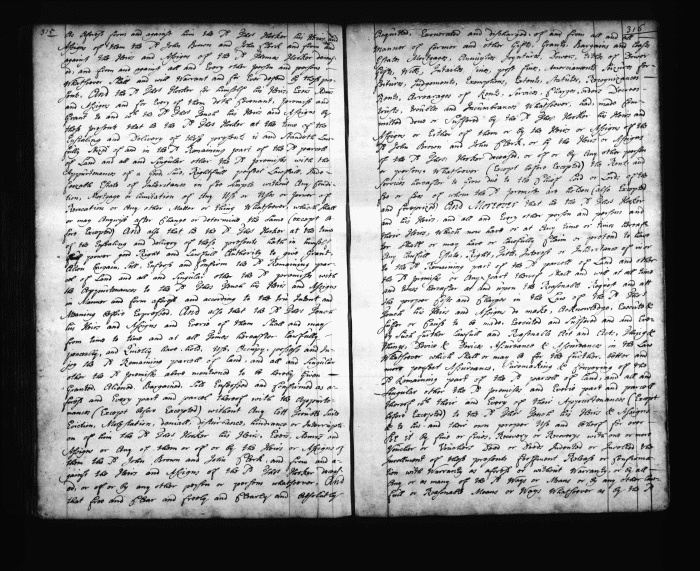 315
as aforesd from and against him the sd Giles Hooker his Heirs and
Assigns of them the sd John Brown and John Clerk and from and
against the Heirs and Assigns of the sd Thomas Hooker deceas'
ed, and from and against all and Every other person and persons
Whatsoever Shall and will Warrant and for Ever defend by these pre
sents. And the sd Giles Hooker for himself his Heirs Exrs Admrs
and Assigns and for Every of them doth Covenant, promise and
Grant to and wth the sd Giles his Heirs and Assigns by
these presents that he the sd Giles Hooker at the time of the
Ensealing and Delivery of these presents is and Standeth Law
fully Seized of and in the Remaining part of the sd parcel
of Land and all and Singular other the sd premises with the
Appurtenances of a Good Sure Rightfull perfect Lawfull, Inde
feazable Estate of Inheritance in fee Simple without Any Condi
tion, Mortgage or limitation of Any Use or Uses or power of
Revocation or Any other Matter or thing Whatsoever, which Shall
or may Any ways alter Change or determine the Same (except be
fore Excepted) And also that he the sd Giles Hooker at the time
of the Ensealing and delivery of these presents hath in himself
full power good Right and Lawfull Authority to give Grant
Alien Bargain, Sell Enfeoff and Confirm the sd Remaining part
of Land and all and Singular other the sd premises with
the Appurtenances to the sd Giles his Heirs and Assigns
in Manner and form aforesd and according to the true Intent and
Meaning before Expressed. And also that the sd Giles
his Heirs and Assigns and Every of them Shall and may
from time to time and at all times hereafter lawfully
peaceably, and Quietly have hold, Use, Occupy, possess and En
joy the sd Remaining parcel of land, and all and Singular
other the sd premises above mentioned to be hereby Given
Granted, Aliened, Bargained, Sold Enfeoffed and Confirmed as a-
foresd and Every part and parcel thereof with the Appurte
nances (Except before Excepted) without Any Lett Trouble Suit
Eviction, Molestation, demand, disturbance, hindrance or Interrupti
on of him the sd Giles Hooker his Heirs, Exrs, Admrs and
Assigns or Any of them or of or by the Heirs or Assigns of
them the sd John Brown and John Clerk, and from and a
gainst the Heirs and Assigns of the sd Hooker deceas'
ed, or of or by Any other person or persons whatsoever. And
that free and Clear and freely and Clearly and Absolutely
316
Acquitted, Exonerated and discharged, of and from all and all
Manner of former and other Gifts, Grants, Bargains and Sales
Estates, Mortgages, Annuities, Joyntures, Dowers, Titles of Dower
Gifts, Wills, Intails, fines, post fines, Amerciaments, Issues, for
feitures, Judgements, Executions, Extents, Statutes, Recognizances
Rents, Arrearages of Rents, Services, Charges, Orders Decrees
Troubles and Incumbrances Whatsoever, had, made Com
mitted done or Suffered by the sd Giles Hooker his Heirs and
Assigns or Either of them or by the Heirs or Assigns of the
sd John Brown and John Clerk, or by the Heirs or Assigns
of the sd Hooker deceased, or of or by Any other person
or persons whatsoever (Except before Excepted) the Rent and
Services hereafter to Grow due to the Chief Lord or Lords of the
fee or fees of whom the sd premises are holden (also Excepted
and foreprized) And Moreover that he the sd Giles Hooker
and his Heirs, and all and Every other person and persons and
their Heirs, Which now have or at Any time or times hereaft
er Shall or may have or lawfully Claim or pretend to have
Any lawfull Estate, Right, Title, Interest or Inheritance of in or
to the sd Remaining part of the sd parcel of Land and other
the sd premises or Any part thereof Shall and will at all time
and times hereafter at and upon the Reasonable Request and att
the proper Costs and Charges in the Law of the sd Giles
his Heirs and Assigns do make, Acknowledge, Execute &
Suffer or Cause to be made, Executed and Suffered all and Eve
ry Such further lawfull and Reasonable Act and Acts, thing &
things, Device & Devices, Assurance & Assurances in the Law
Whatsoever which Shall or may be for the further better and
more perfect Assurance, Suremaking & Conveying of the
sd Remaining part of the sd parcel of Land, and all and
Singular other the sd premises and Every part and parcel
thereof wth their and Every of their Appurtenances (Except
before Excepted) to the sd Giles his Heirs & Assigns
to his and their own proper Use and behoof for ever
be it by fine or fines, Recovery or Recoverys with one or more
Voucher or Vouchers Deed or Deeds Indented or Inrolled the
Inrollment of these presents Feofment Release or Confirma
tion with Warranty as aforesd or without Warranty, or by all
Any or as many of the sd Ways or Means or by any other law
full or Reasonable Means or Ways Whatsoever as by the sd